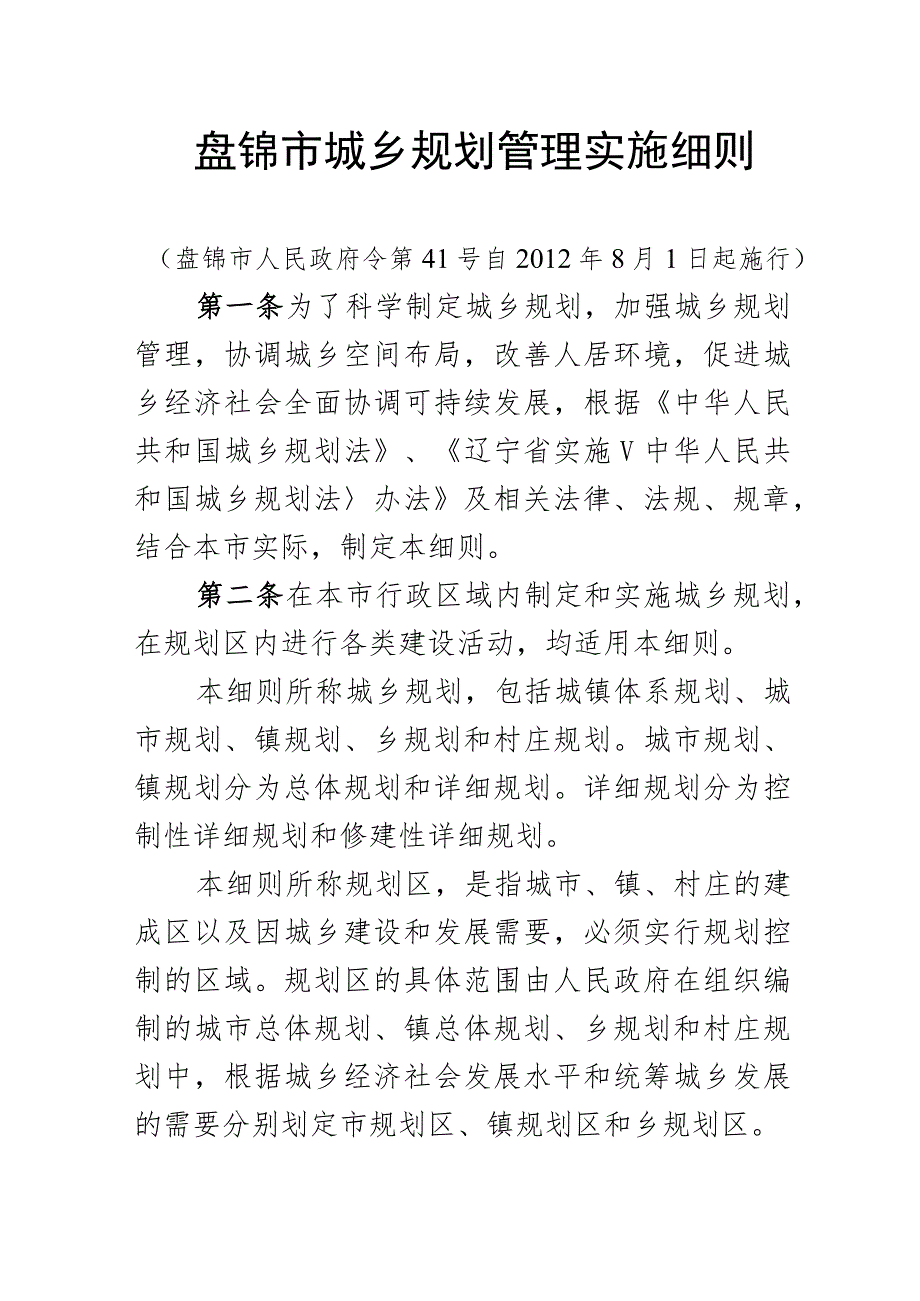 盘锦市城乡规划管理实施细则
（盘锦市人民政府令第 41 号自 2012 年 8 月 1 日起施行）
第一条为了科学制定城乡规划，加强城乡规划
管理，协调城乡空间布局，改善人居环境，促进城
乡经济社会全面协调可持续发展，根据《中华人民
共和国城乡规划法》、《辽宁省实施 V 中华人民共
和国城乡规划法〉办法》及相关法律、法规、规章，
结合本市实际，制定本细则。
第二条在本市行政区域内制定和实施城乡规划，
在规划区内进行各类建设活动，均适用本细则。
本细则所称城乡规划，包括城镇体系规划、城
市规划、镇规划、乡规划和村庄规划。城市规划、
镇规划分为总体规划和详细规划。详细规划分为控
制性详细规划和修建性详细规划。
本细则所称规划区，是指城市、镇、村庄的建
成区以及因城乡建设和发展需要，必须实行规划控
制的区域。规划区的具体范围由人民政府在组织编
制的城市总体规划、镇总体规划、乡规划和村庄规
划中，根据城乡经济社会发展水平和统筹城乡发展
的需要分别划定市规划区、镇规划区和乡规划区。